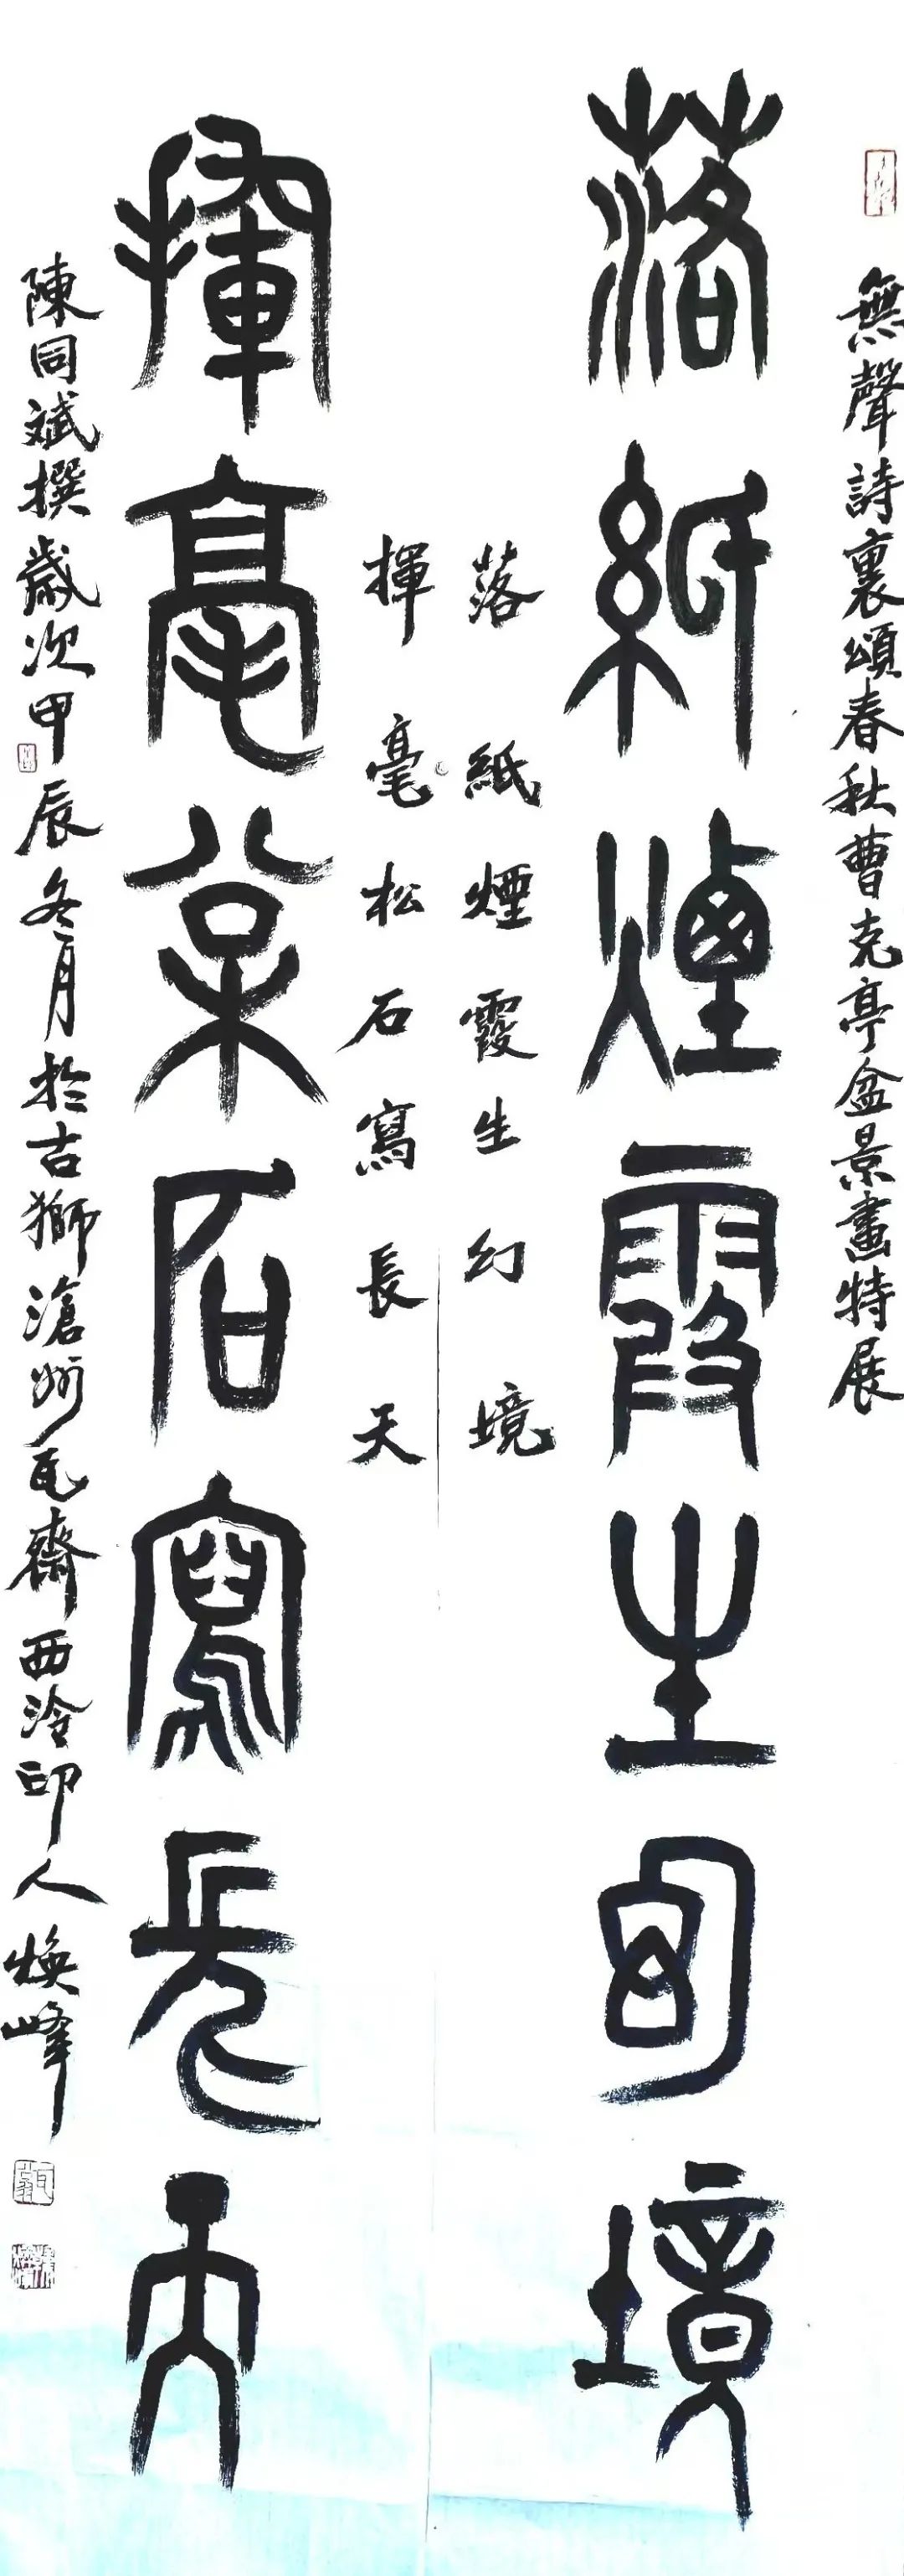 無聲詩裏頌春秋曹克亭盆景畫特展
落紙煙霞生幻境
落紙煙霞生幻境
揮毫松石寫長天
揮毫松石寫長天
陳同斌撰歲次甲辰冬月於古獅滄州瓦齋西泠印人煥峰